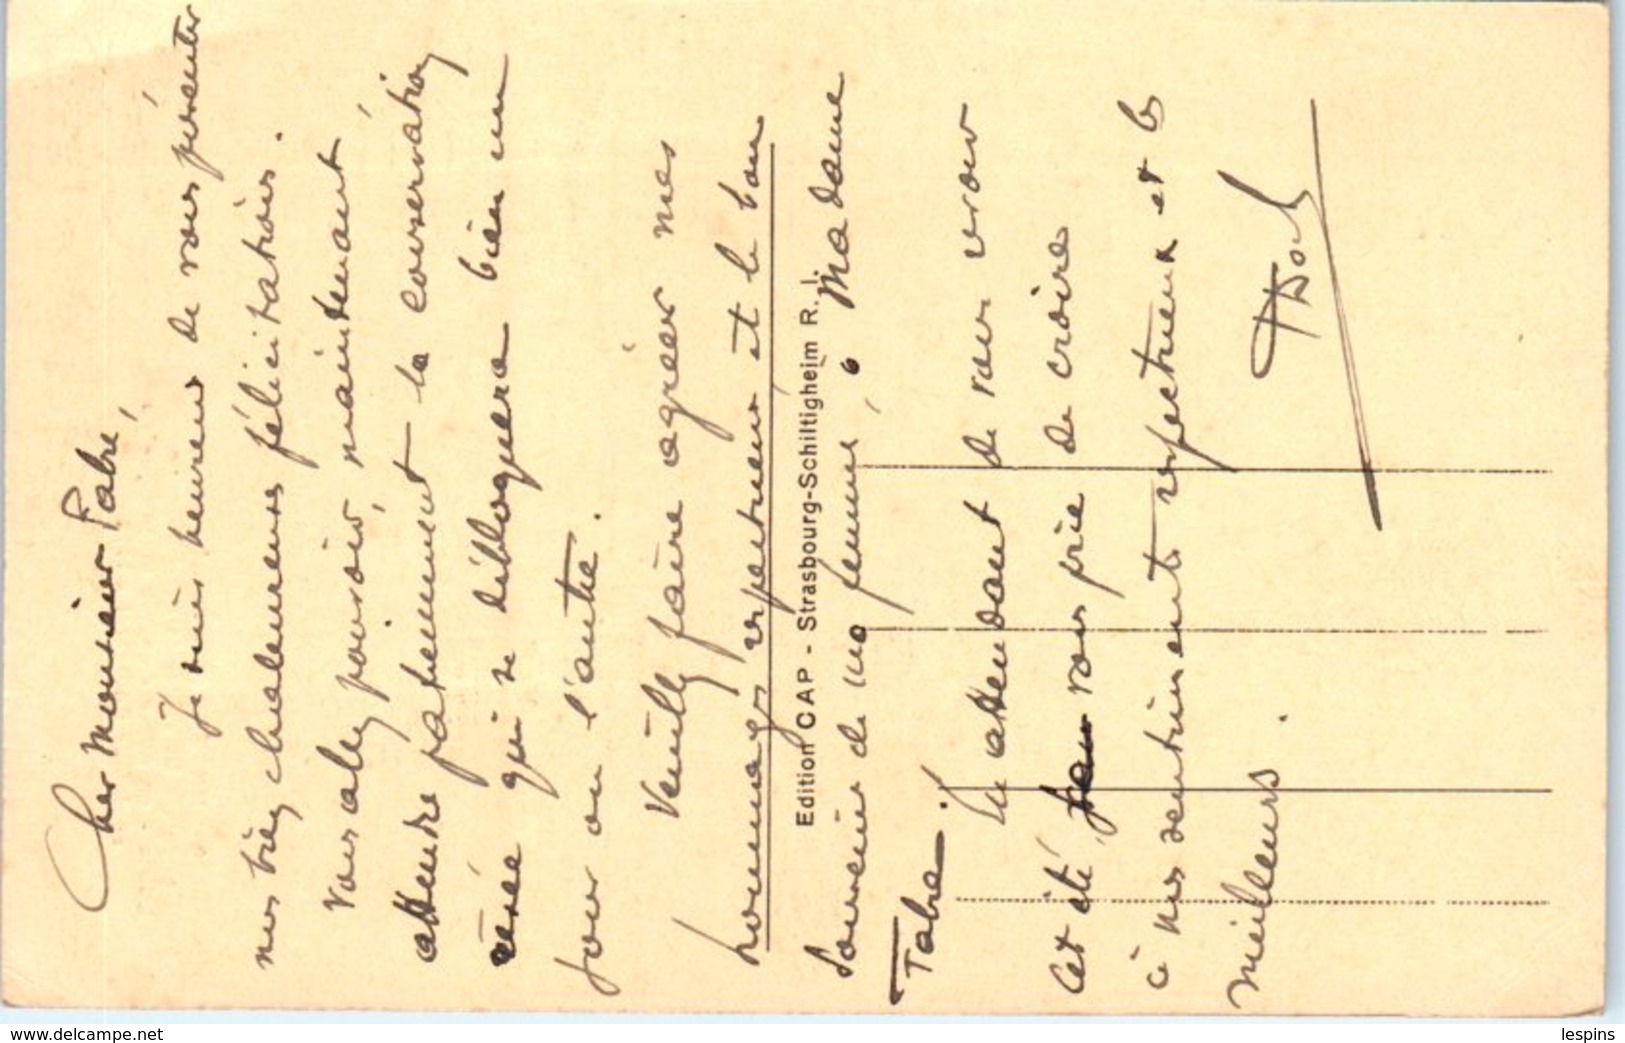 Cher Monsieur Fabre,
Je suis heureux de vous présenter
mes très chaleureuses félicitations.
Vous allez pouvoir, maintenant
attendre patiemment la conservation
rêvée qui se débloquera bien un
jour ou l'autre.
Veuillez faire agréer mes
hommages respectueux et le bon
souvenir de ma femme, à Madame
Fabre.
En attendant de vous voir
cet été, vous prie de croire
à mes sentiments respectueux et les
meilleurs.
Edition CAP - Strasbourg-Schiltigheim R. I.
www.delcampe.net
lespins